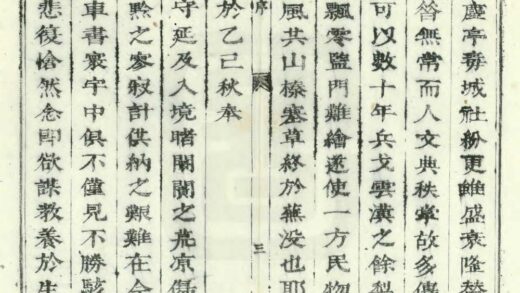 慶亭城社枌更雖盛衰隆替
無常而人文典秩掌故多傳
可以數十年兵戈雲漢之餘
飄零監門難繪遂使一方民物
風共山榛塞草終於蕪没也耶
序 三
於乙巳秋奉
守延及入境睹閭閻之荒凉傷
黔之寥寂計供納之艱難在今
車書寰宇中俱不僅見不勝駭
悲復愴然念即欲謀教養於生